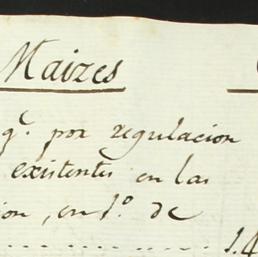 Maizes
q.e por regulacion
existentes en las
ion, en 1.o de
1.4